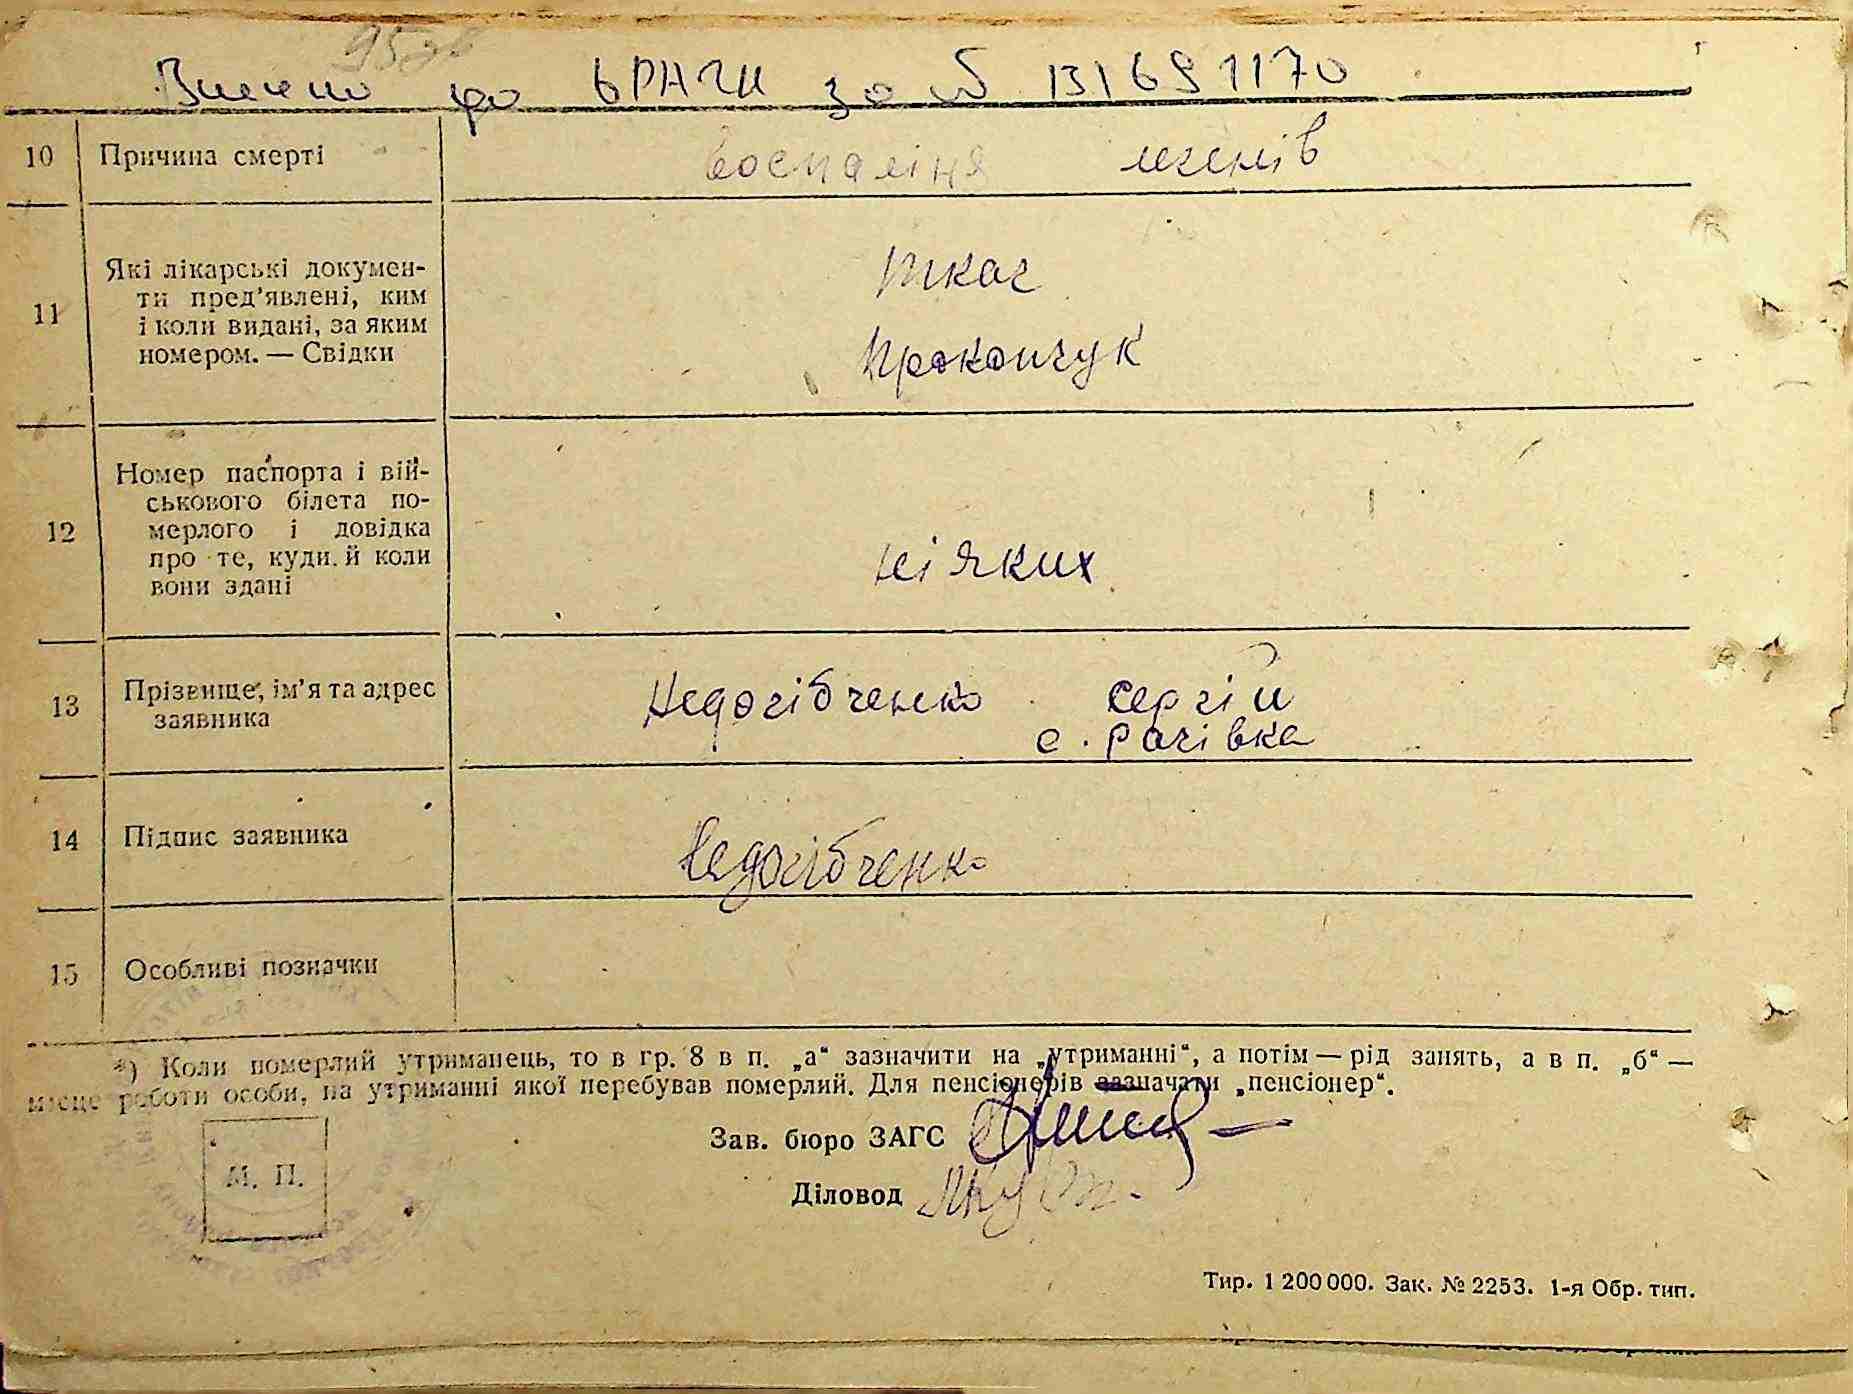 95
Внесено до ЬРАЧГИ за № 131691170
10 Причина смерті
воспаління легенів
11 Які лікарські докумен-
ти пред'явлені, ким
і коли видані, за яким
номером. — Свідки
Ткач
Прокопчук
12 Номер паспорта і вій-
ськового білета по-
мерлого і довідка
про те, куди й коли
вони здані
ніяких
13 Прізвище, ім'я та адрес
заявника
Недогібченко Сергій
с. Рачівка
14 Підпис заявника
Недогібченко
15 Особливі позначки
*) Коли померлий утриманець, то в гр. 8 в п. „а“ зазначити на „утриманні“, а потім — рід занять, а в п. „б“ —
місце роботи особи, на утриманні якої перебував померлий. Для пенсіонерів зазначати „пенсіонер“.
Зав. бюро ЗАГС
Діловод
М. П.
Тир. 1 200 000. Зак. № 2253. 1-я Обр. тип.